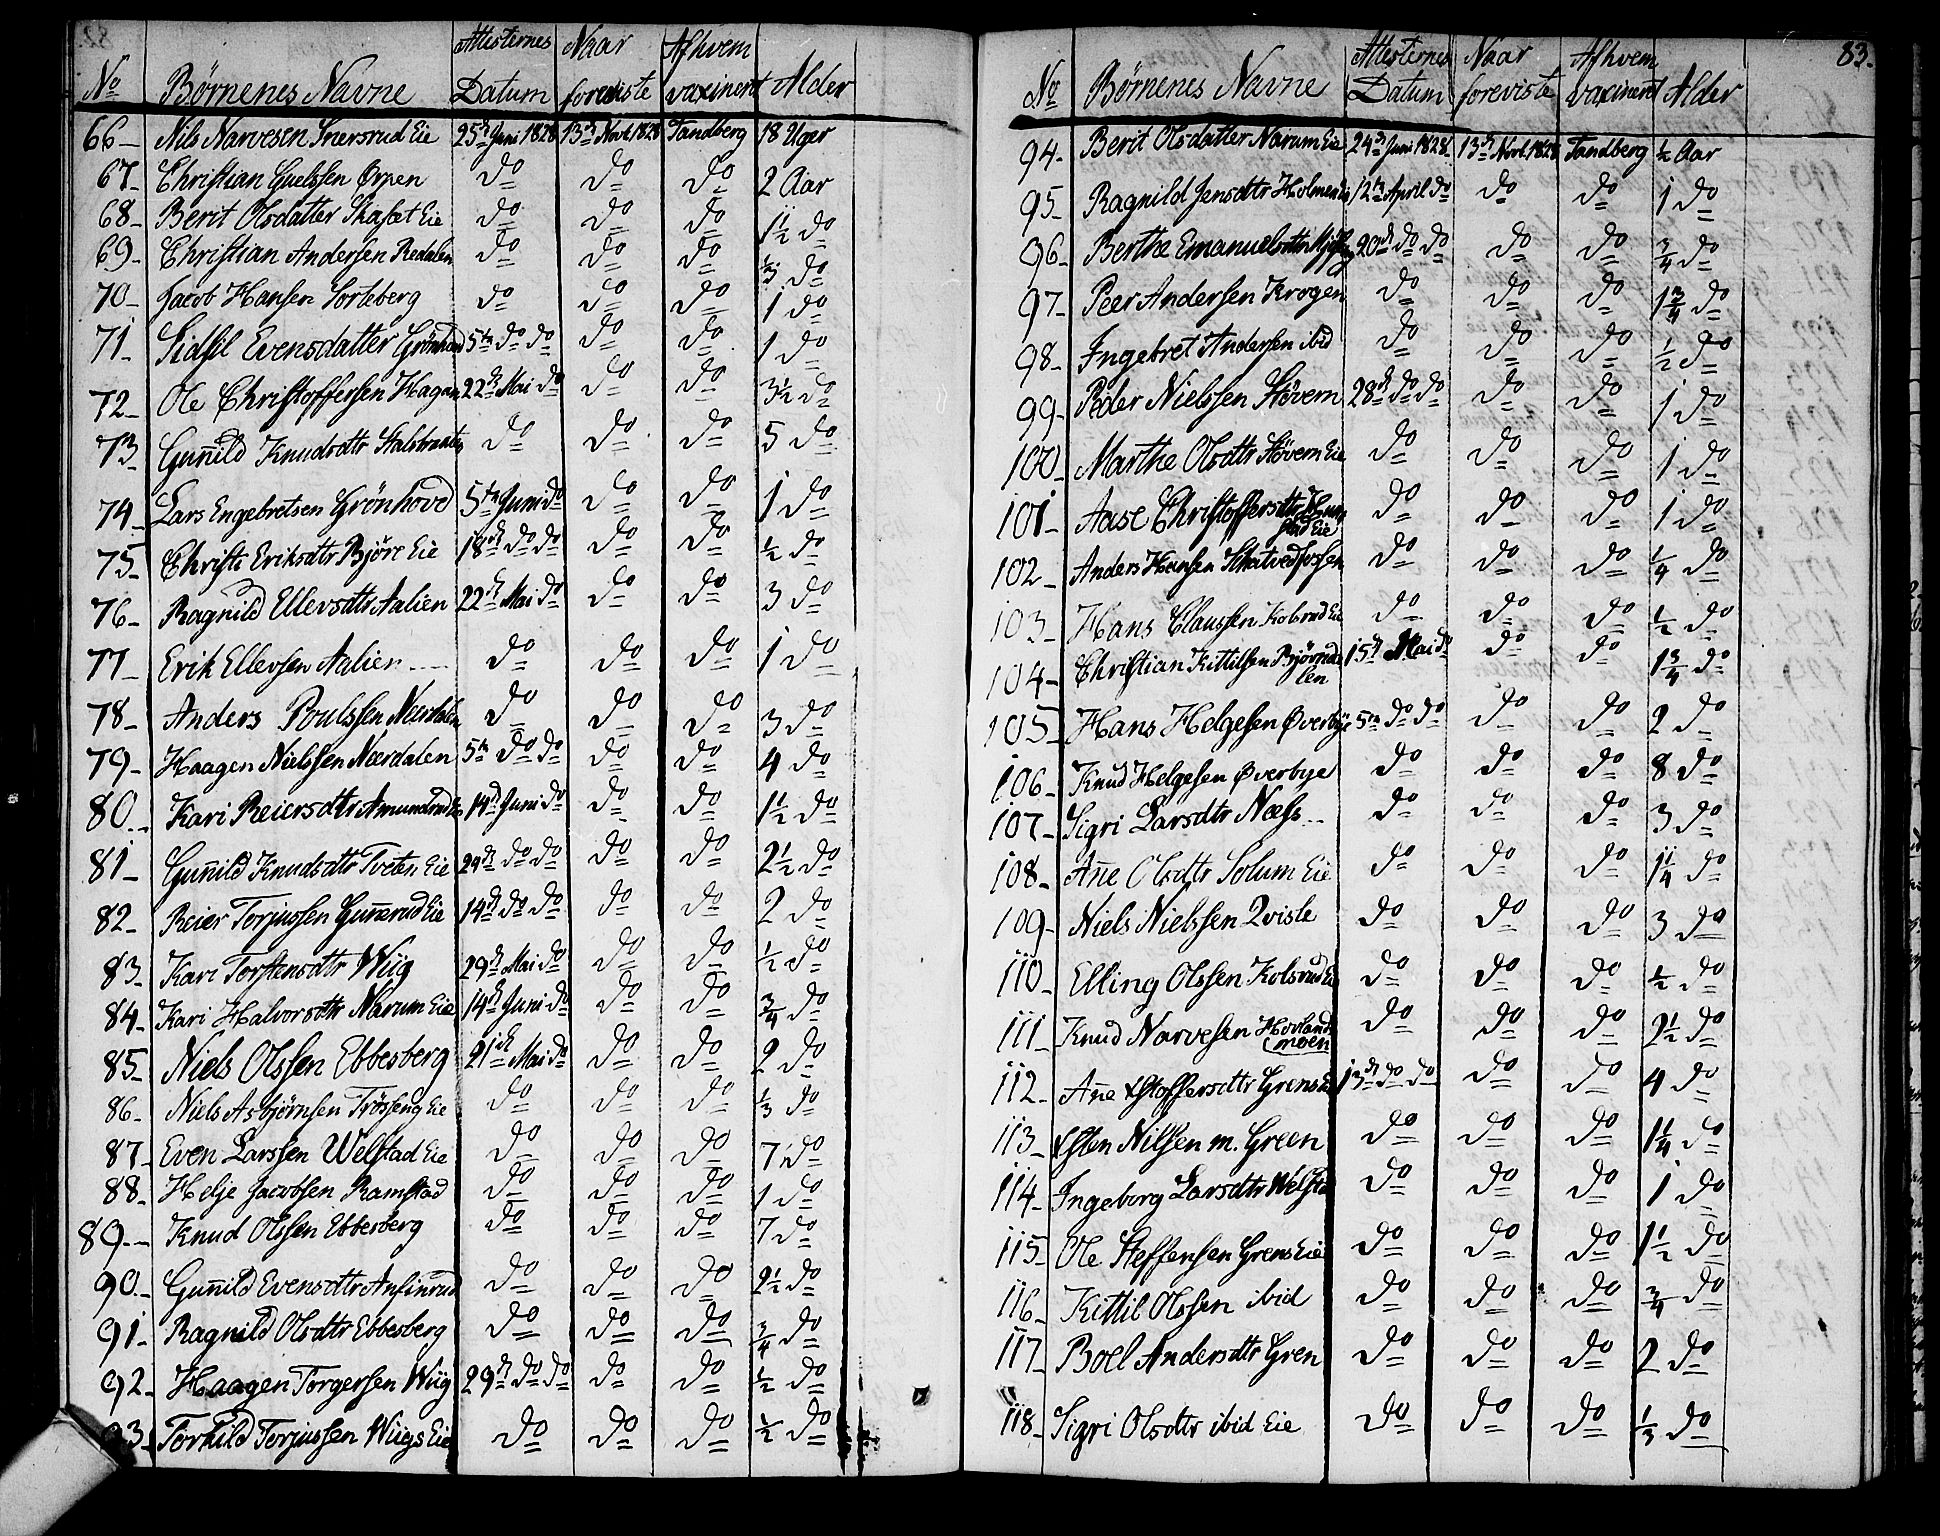 No Børnenes Navne Attisternes Datum Naar foreviste Afhvem vaxinent Alder
66 Nils Narvesen Snersrud Eie 25de Juni 1828 13de Novl 1828 Tandberg 18 Uger
67 Christian Guelssen Ørpen do do do 2 Aar
68 Berit Olsdatter Skaset Eie do do do 1½ do
69 Christian Andersen Redalen do do do ½ do
70 Jacob Hansen Sorteberg do do do 1 do
71 Sidsil Evensdatter Grönhovd 5te do do do do 1 do
72 Ole Christoffersen Hagan 22de Mai do do do 3½ do
73 Guñild Knudsdtr Stalsbraaten do do do 5 do
74 Lars Engebretsen Grönhovd 5te Juni do do do 1 do
75 Christi Eriksdtr Björe Eie 18de do do do do ½ do
76 Ragnild Ellevsdtr Aalien 22de Mai do do do 3 do
77 Erik Ellevsen Aalien do do do 1 do
78 Anders Poulssen Neerdalen do do do 3 do
79 Haagen Nielssen Neerdalen 5te do do do do 4 do
80 Kari Reiersdtr Amundrud Eie 14de Juni do do do 1½ do
81 Guñild Knudsdtr Tveten Eie 24de do do do do 2½ do
82 Reier Torjussen Guñerud Eie 14de do do do do 2 do
83 Kari Torstensdtr Wiig 29de Mai do do do ½ do
84 Kari Halvorsdtr Narum Eie 14de Juni do do do ¾ do
85 Niels Olssen Ebbesberg 21de Mai do do do 2 do
86 Niels Asbjörnsen Trösseng Eie do do do ⅓ do
87 Even Larssen Welstad Eie do do do 7 do
88 Helje Jacobsen Ramstad do do do 1 do
89 Knud Olssen Ebbesberg do do do 7 do
90 Guñild Evensdtr Anfinrud do do do 2½ do
91 Ragnild Olsdtr Ebbesberg do do do ¾ do
92 Haagen Torgersen Wiig 29de do do do do ½ do
93 Torkild Torjussen Wiigs Eie do do do ½ do
83.
No Børnenes Navne Attisternes Datum Naar foreviste Afhvem vaxinent Alder
94 Berit Olsdatter Narum Eie 24de Juni 1828 13de Novl 1828 Tandberg ½ Aar
95 Ragnild Jensdtr Holmen Eie 12te April do do do 1 do
96 Berthe Emanuelsdtr 20de do do do do ¾ do
97 Peer Andersen Krogen do do do 1¾ do
98 Ingebret Andersen ibid do do do ½ do
99 Peder Nielssen Stövern 28de do do do do 1 do
100 Marthe Olsdtr Stövern Eie do do do 1 do
101 Aase Christoffersdtr Eie do do do 1 do
102 Anders Hansen Skatvedfossen do do do ¼ do
103 Hans Claussen Kolsrud Eie do do do ½ do
104 Christian Kittilsen Björndalen 15de Mai do do do 1¾ do
105 Hans Helgesen Øverbye 5te do do do do 2 do
106 Knud Helgesen Øverbye do do do 8 do
107 Sigri Larsdtr Næss do do do 3 do
108 Añe Olsdtr Solum Eie do do do 1¼ do
109 Niels Nielssen Qvisle do do do 3 do
110 Elling Olssen Kolsrud Eie do do do ½ do
111 Knud Narvesen Hovlandsmoen do do do 2½ do
112 Añe Xstoffersdtr Grens Eie 13de do do do do 4 do
113 Xsten Nilsen m. Green do do do 1¼ do
114 Ingeborg Larsdtr Welstad do do do 1 do
115 Ole Steffensen Grens Eie do do do 1½ do
116 Kittil Olssen ibid do do do ¾ do
117 Boel Andersdtr Gren do do do 2 do
118 Sigri Olsdtr ibid Eie do do do ⅓ do